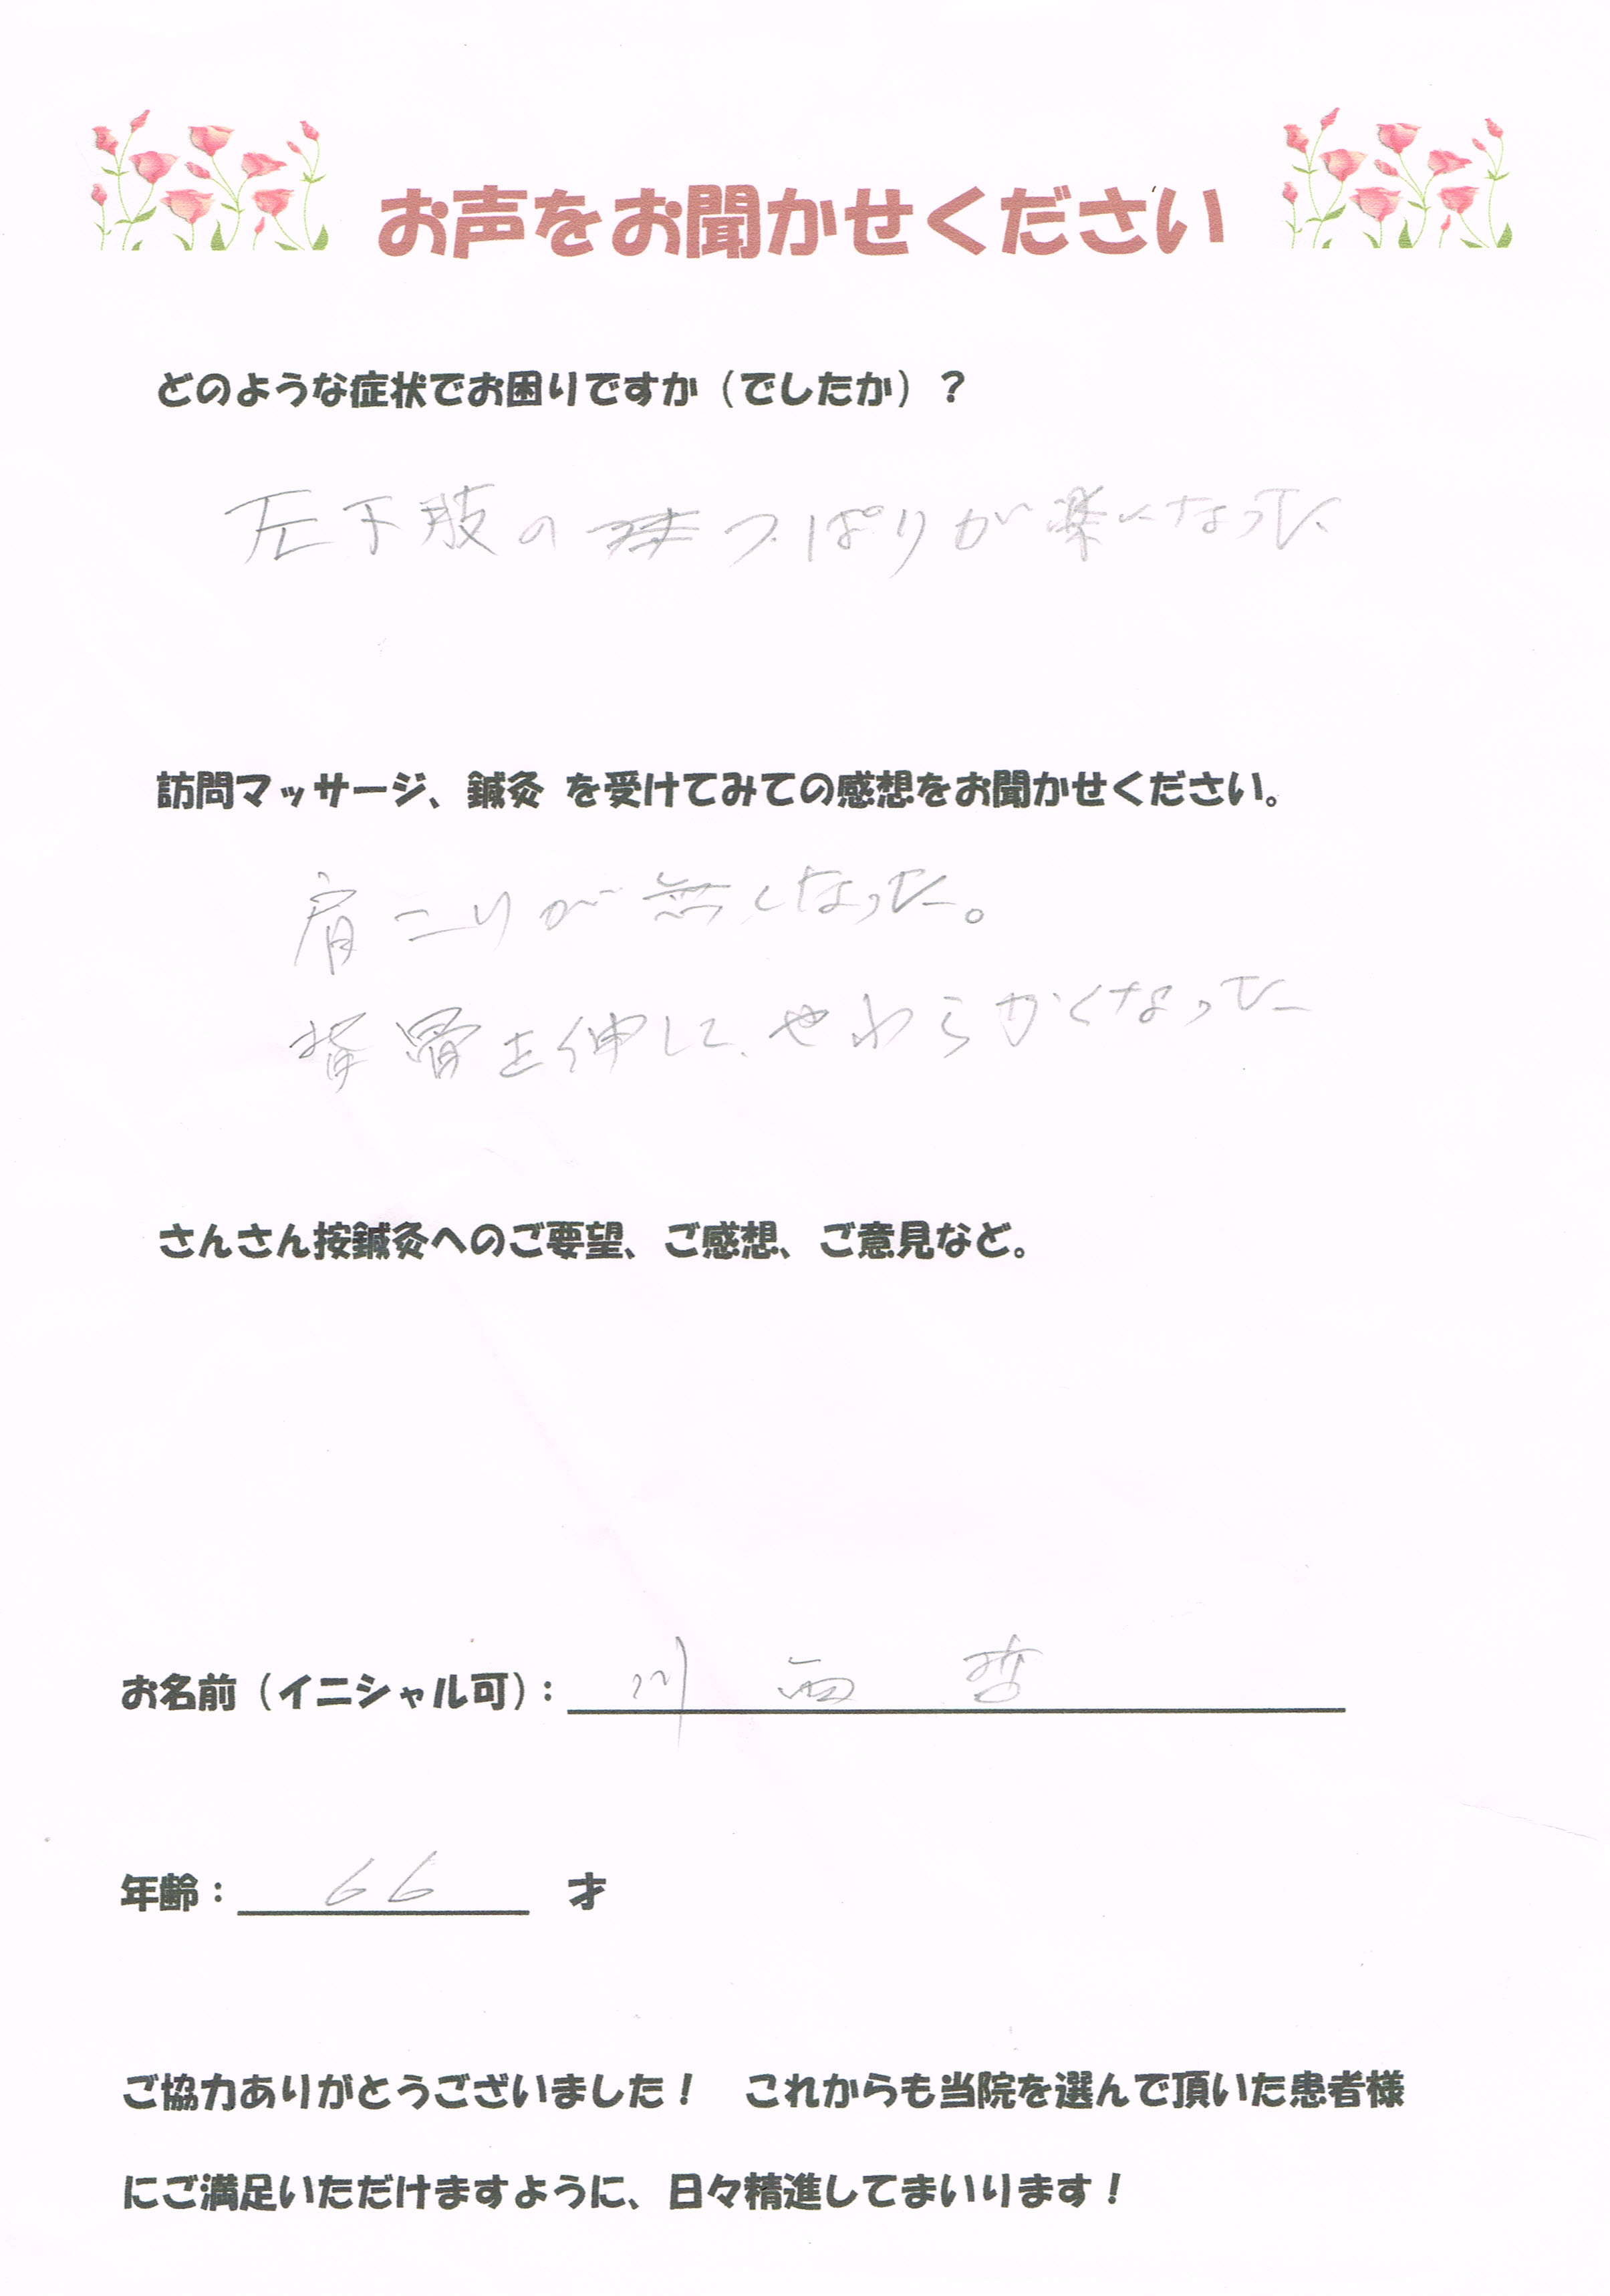 お声をお聞かせください
どのような症状でお困りですか（でしたか）？
左下肢の つっぱりが楽になった
訪問マッサージ、鍼灸 を受けてみての感想をお聞かせください。
肩こりが無くなった。
背骨を伸して、やわらかくなった
さんさん按鍼灸へのご要望、ご感想、ご意見など。
お名前（イニシャル可）：川西
年齢：66 才
ご協力ありがとうございました！ これからも当院を選んで頂いた患者様
にご満足いただけますように、日々精進してまいります！